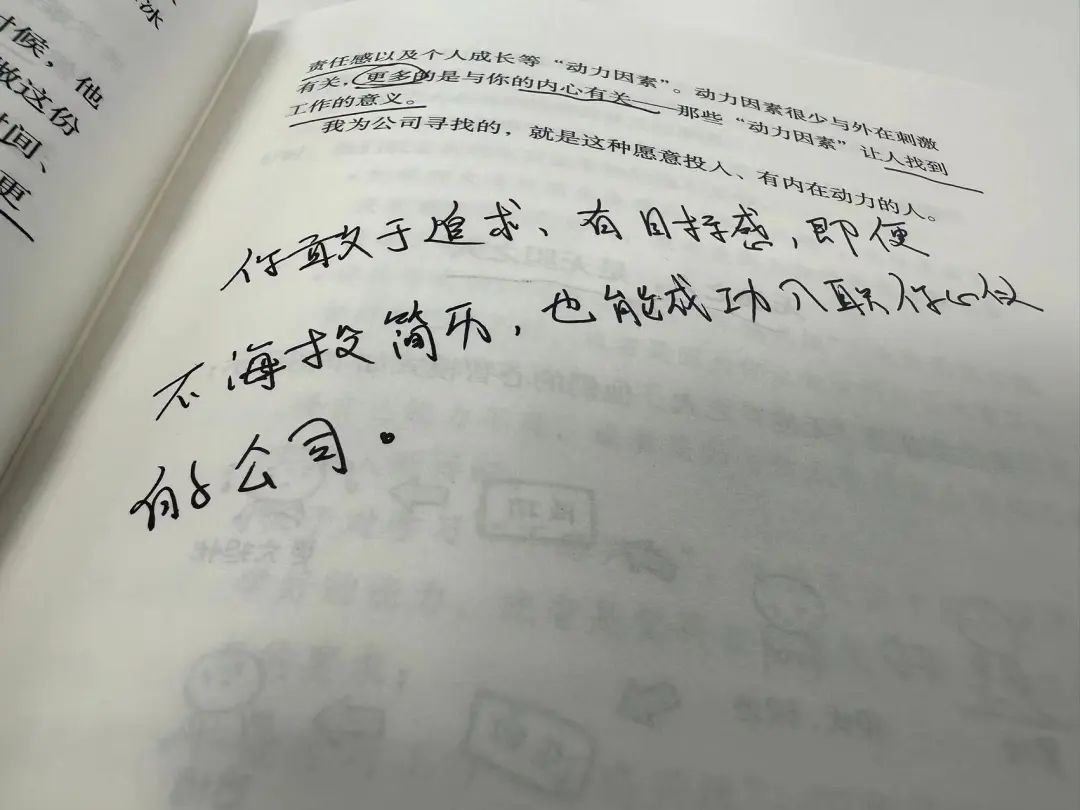 冰
时候，他
做这份
时间、
更
责任感以及个人成长等“动力因素”。动力因素很少与外在刺激
有关，更多的是与你的内心有关——那些“动力因素”让人找到
工作的意义。
我为公司寻找的，就是这种愿意投入、有内在动力的人。
你敢于追求、有目标感，即便
不海投简历，也能成功入职你心仪
的公司。